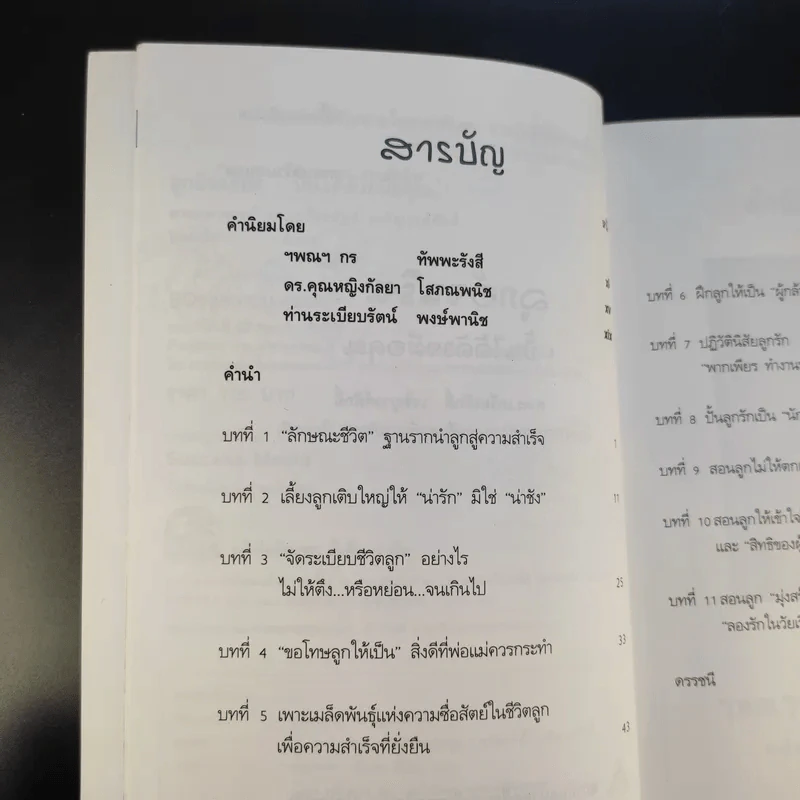 สารบัญ
คำนิยมโดย
ฯพณฯ กร ทัพพะรังสี
ดร.คุณหญิงกัลยา โสภณพนิช xi
ท่านระเบียบรัตน์ พงษ์พานิช xv
คำนำ xix
บทที่ 1 “ลักษณะชีวิต” ฐานรากนำลูกสู่ความสำเร็จ 1
บทที่ 2 เลี้ยงลูกเติบใหญ่ให้ “น่ารัก” มิใช่ “น่าชัง” 11
บทที่ 3 “จัดระเบียบชีวิตลูก” อย่างไร
ไม่ให้ตึง...หรือหย่อน...จนเกินไป 25
บทที่ 4 “ขอโทษลูกให้เป็น” สิ่งดีที่พ่อแม่ควรกระทำ 33
บทที่ 5 เพาะเมล็ดพันธุ์แห่งความซื่อสัตย์ในชีวิตลูก
เพื่อความสำเร็จที่ยั่งยืน 43
บทที่ 6 ฝึกลูกให้เป็น
บทที่ 7 ปฏิวัตินิสัยลูกรัก
“พากเพียร ทำงาน
บทที่ 8 ปั้นลูกรักเป็น
บทที่ 9 สอนลูกไม่ให้
บทที่ 10 สอนลูกให้เข้าใจ
และ “สิทธิของ
บทที่ 11 สอนลูก
“ลองรักในวัย
ดรรชนี